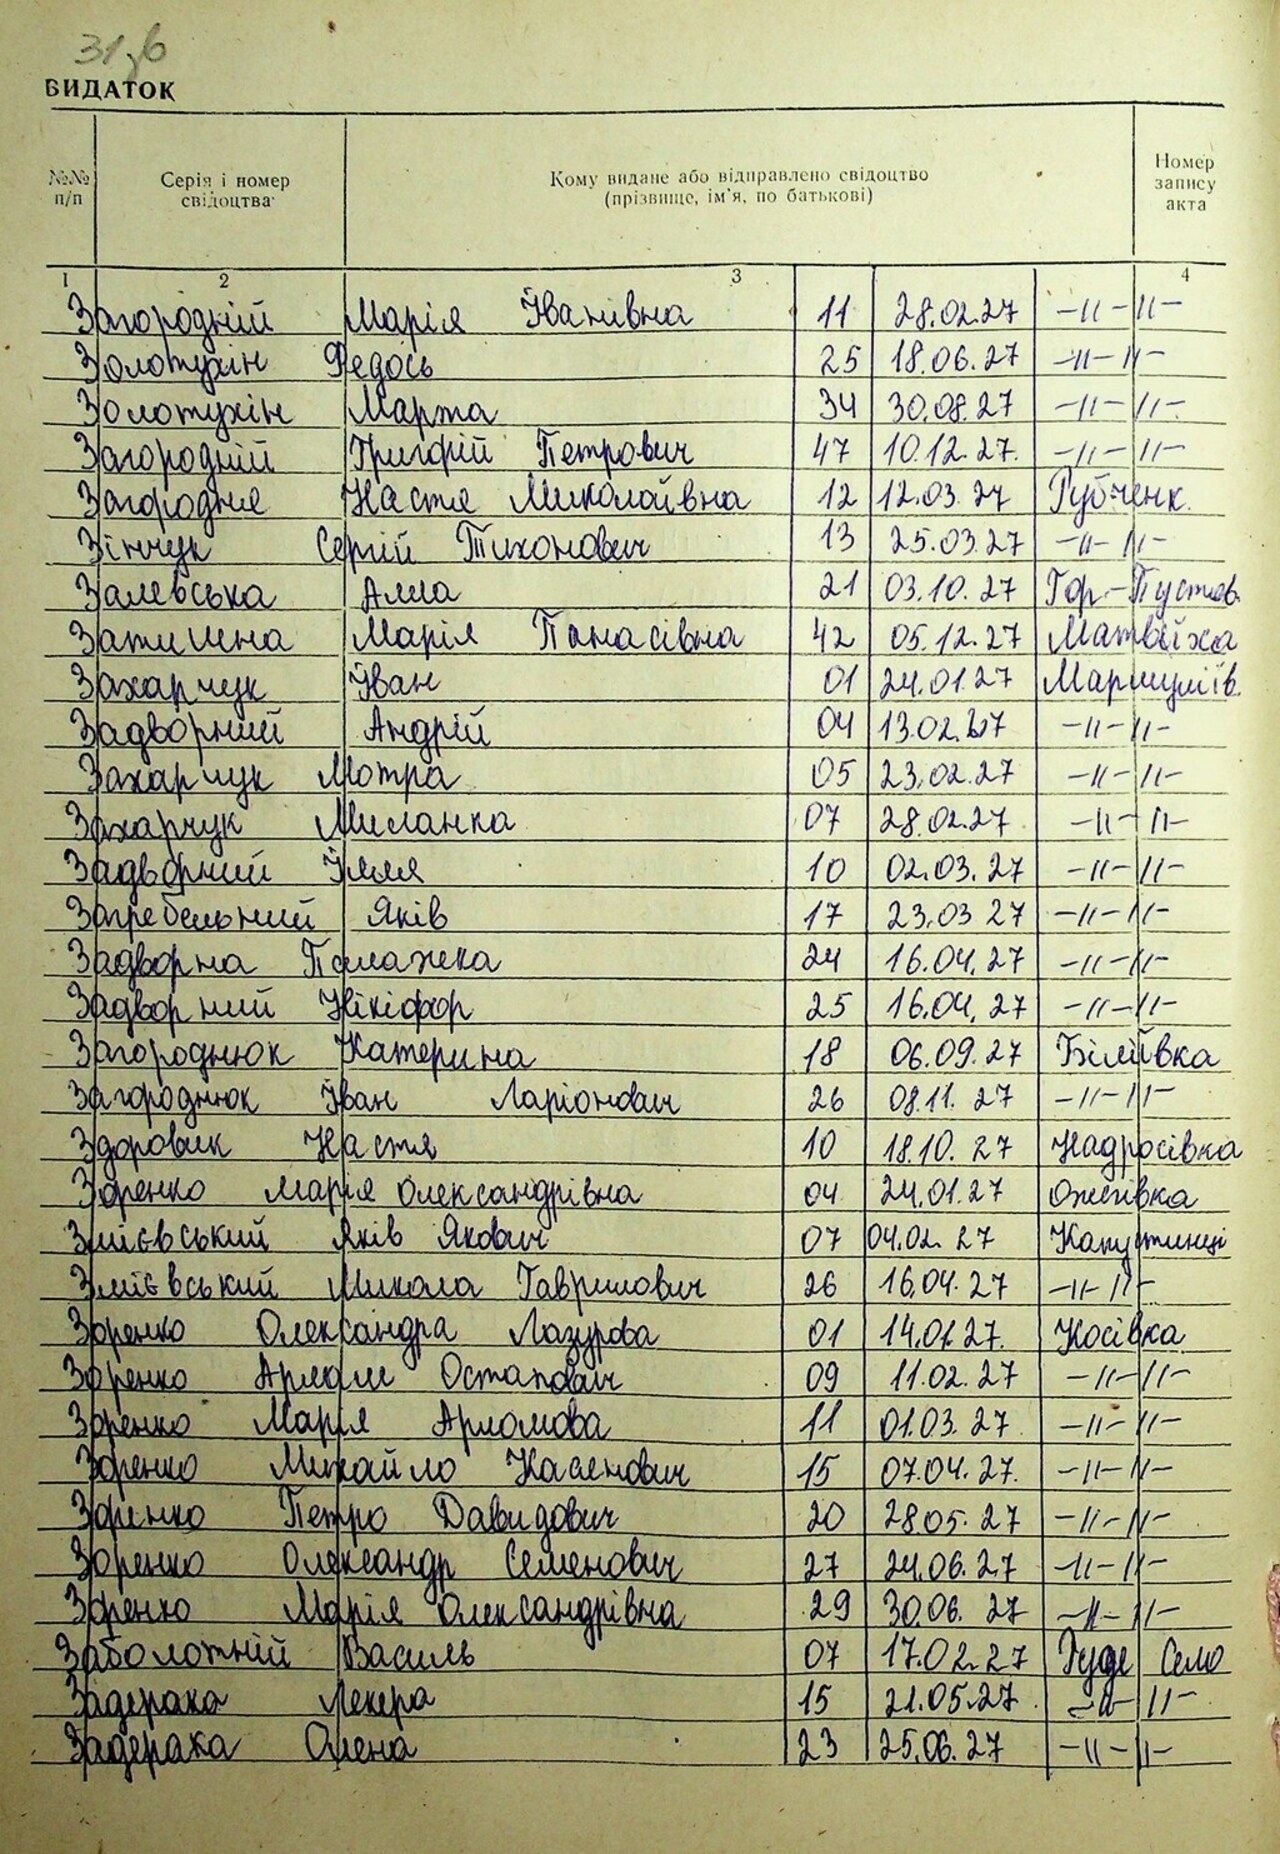 31зв
ВИДАТОК
№№ п/п
Серія і номер свідоцтва
Кому видане або відправлено свідоцтво (прізвище, ім'я, по батькові)
Номер запису акта
1 2 3 4
Загородній Марія Іванівна 11 28.02.27 -||-||-
Золотухін Федось 25 18.06.27 -||-||-
Золотухін Марта 34 30.08.27 -||-||-
Загородній Григорій Петрович 47 10.12.27. -||-||-
Загородня Настя Миколаївна 12 12.03.27 Рубченк.
Зінчук Сергій Тихонович 13 25.03.27 -||-||-
Залевська Алла 21 03.10.27 Гор-Пустов.
Затишна Марія Панасівна 42 05.12.27 Матвіїха
Захарчук Іван 01 24.01.27 Маршуліїв.
Задворний Андрій 04 13.02.27 -||-||-
Захарчук Мотра 05 23.02.27 -||-||-
Захарчук Миланка 07 28.02.27 -||-||-
Задворний Ілля 10 02.03.27 -||-||-
Загребельний Яків 17 23.03 27 -||-||-
Задворна Палажка 24 16.04.27 -||-||-
Задворний Нікіфор 25 16.04.27 -||-||-
Загороднюк Катерина 18 06.09.27 Біліївка
Загороднюк Іван Ларіонович 26 08.11.27 -||-||-
Здоровик Настя 10 18.10.27 Надросівка
Зоренко Марія Олександрівна 04 24.01.27 Ожегівка
Змієвський Яків Якович 07 04.02.27 Капустинці
Змієвський Микола Гаврилович 26 16.04.27 -||-||-
Зоренко Олександра Лазурова 01 14.01.27. Косівка
Зоренко Артом Остапович 09 11.02.27 -||-||-
Зоренко Марія Артомова 11 01.03.27 -||-||-
Зоренко Михайло Касянович 15 07.04.27. -||-||-
Зоренко Петро Давидович 20 28.05.27 -||-||-
Зоренко Олександр Семенович 27 24.06.27 -||-||-
Зоренко Марія Олександрівна 29 30.06.27 -||-||-
Заболотній Василь 07 17.02.27 Руде Село
Задерака Лекера 15 21.05.27 -||-||-
Задерака Олена 23 25.06.27 -||-||-